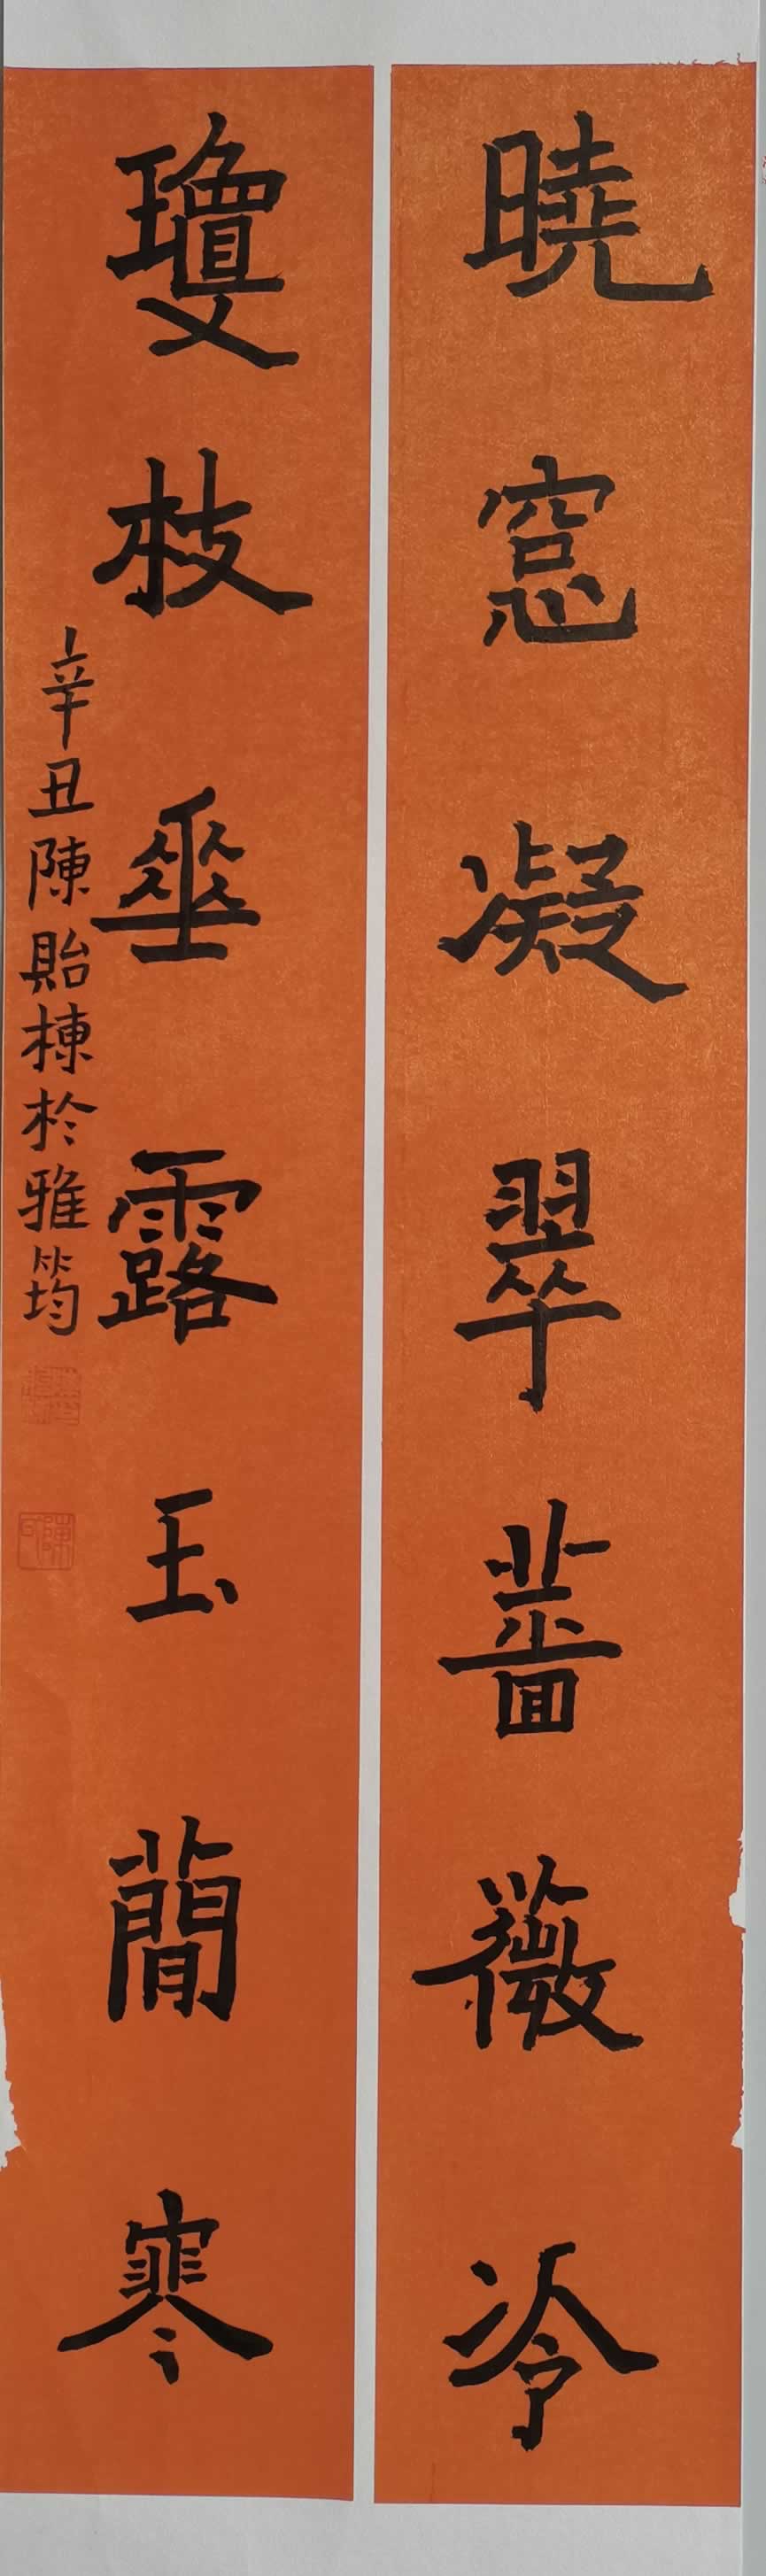 曉窓凝翠薔薇冷
瓊枝垂露玉蕳寒
辛丑陳貽棟於雅筠